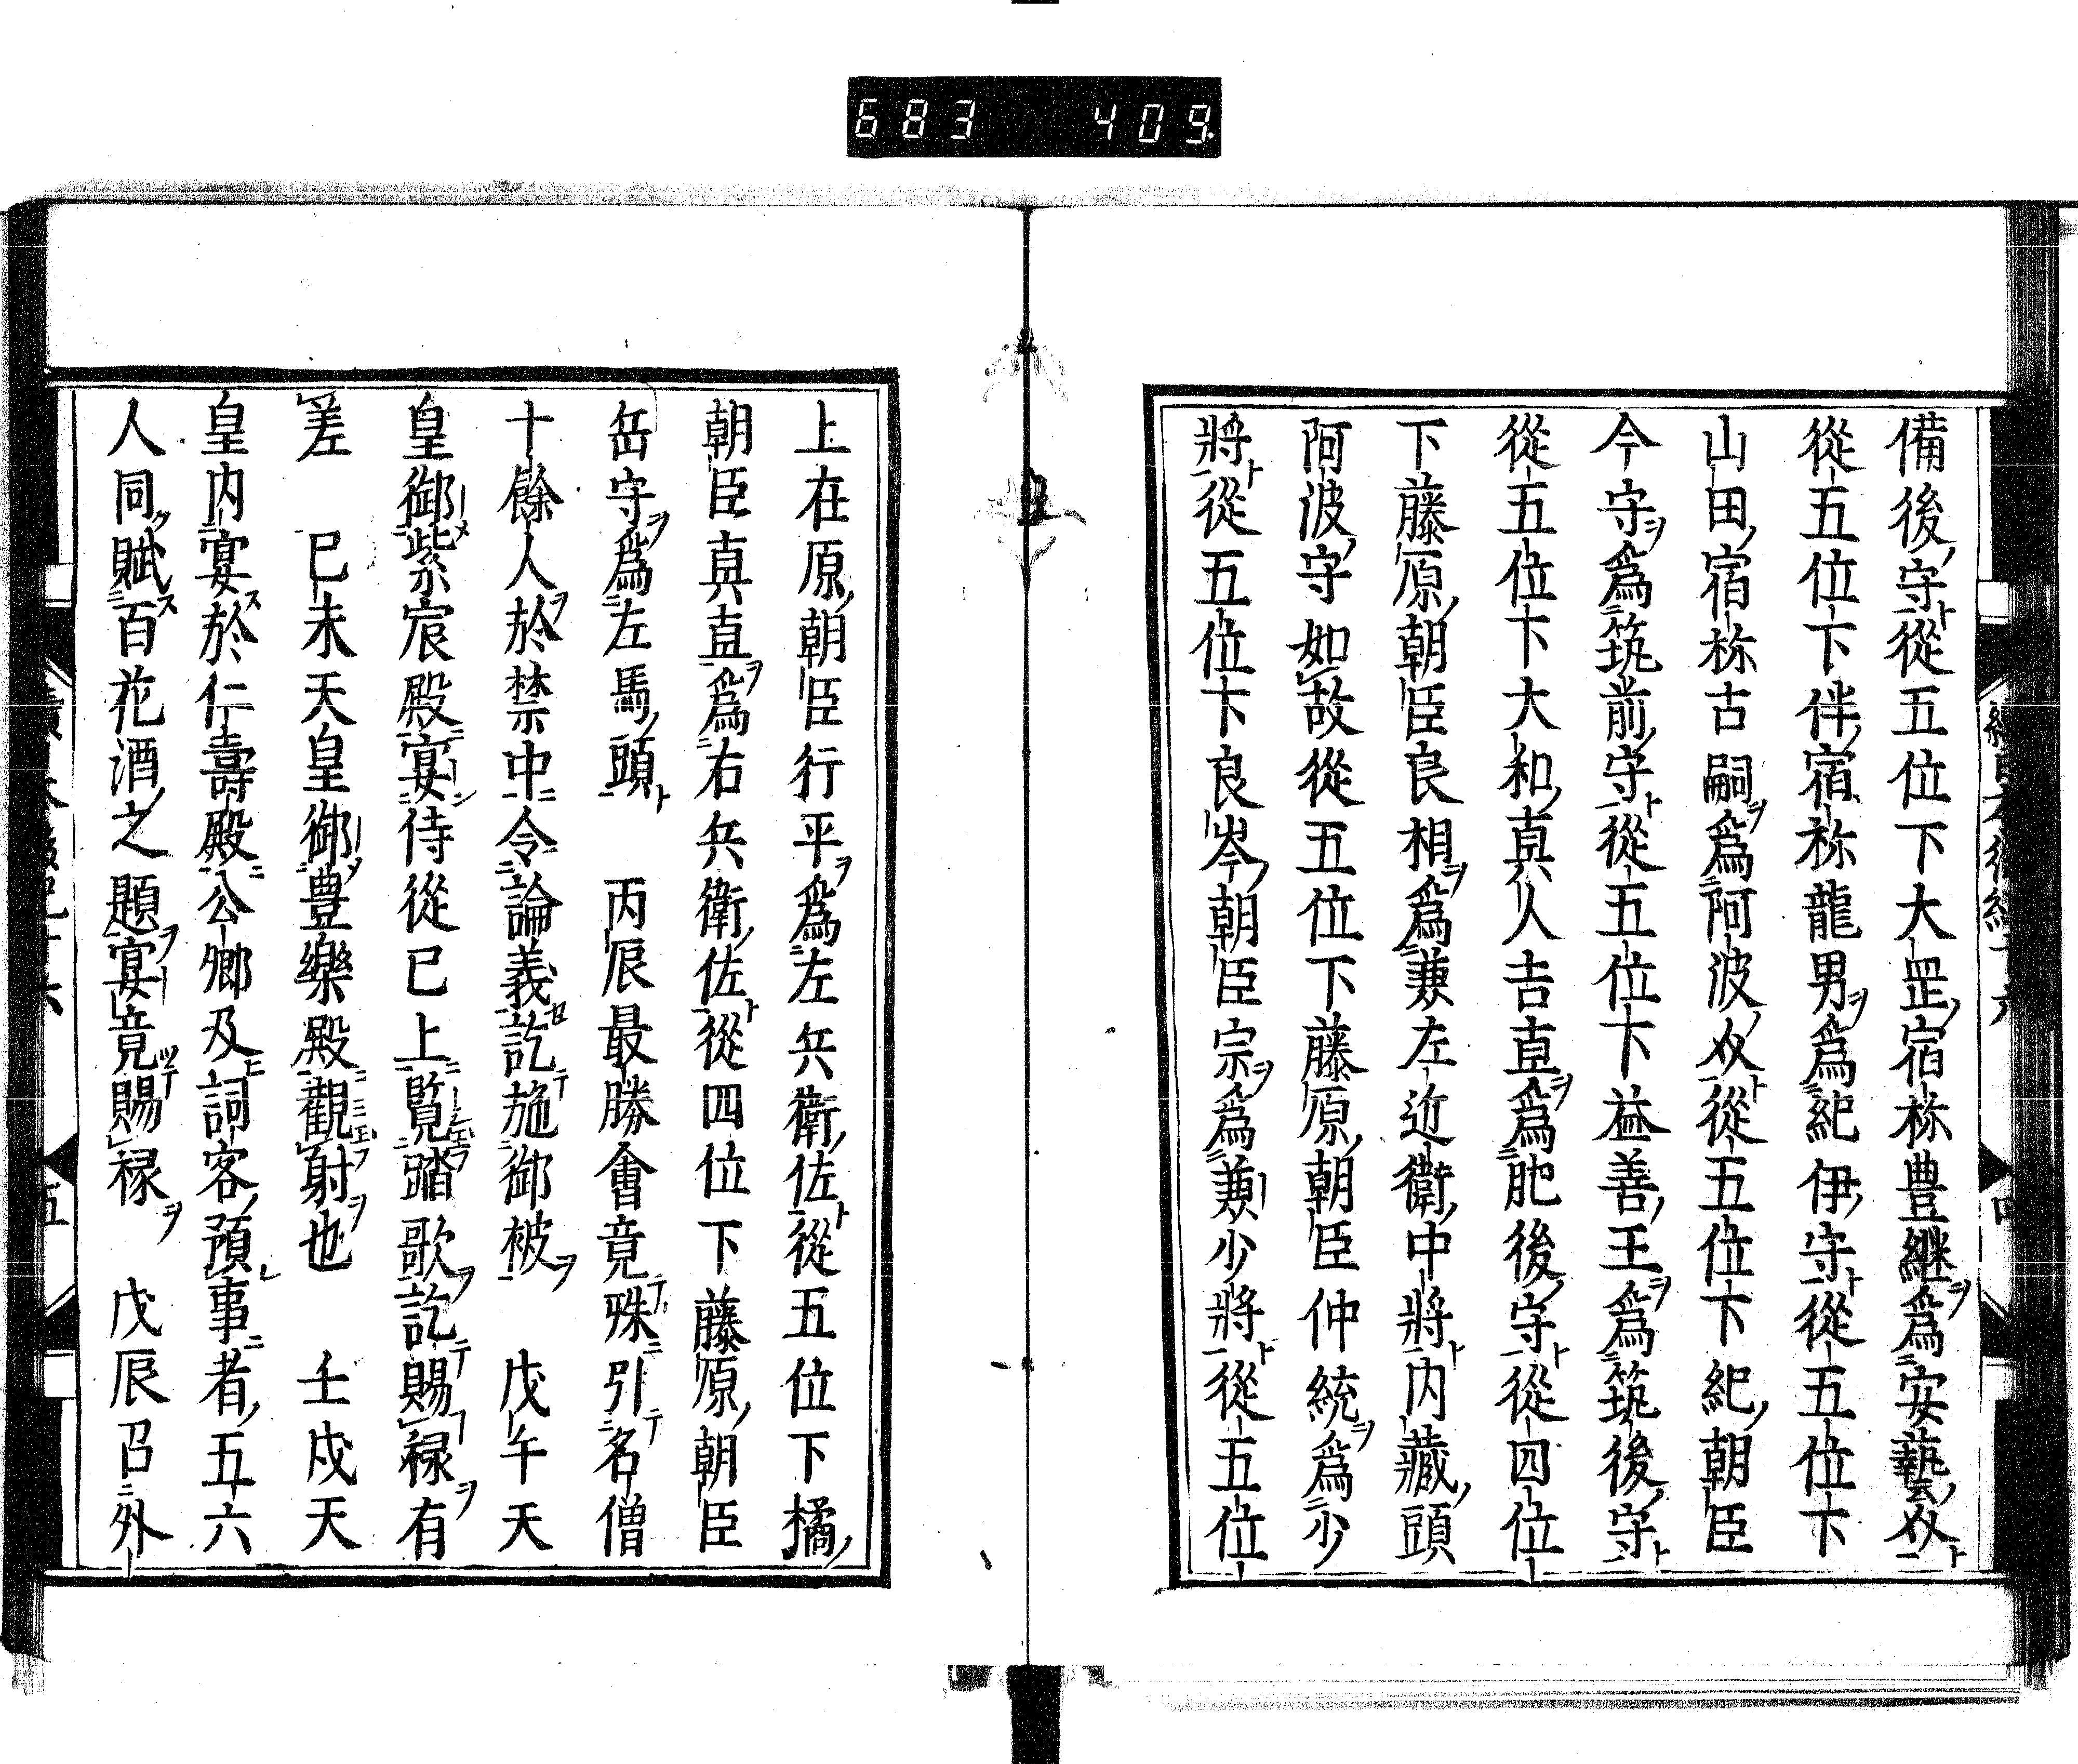 683 409
備後守從五位下大罡宿祢豊継爲安藝守
從五位下伴宿祢龍男爲紀伊守從五位下
山田宿祢古嗣爲阿波守從五位下紀朝臣
今守爲筑前守從五位下益善王爲筑後守
從五位下大和真人吉直爲肥後守從四位
下藤原朝臣良相爲兼左近衛中將内藏頭
阿波守如故從五位下藤原朝臣仲統爲少
將從五位下良岑朝臣宗爲兼少將從五位
上在原朝臣行平爲左兵衛佐從五位下橘
朝臣真直爲右兵衛佐從四位下藤原朝臣
岳守爲左馬頭 丙辰最勝會竟殊引名僧
十餘人於禁中令論義訖施御被 戊午天
皇御紫宸殿宴侍從已上覧踏歌訖賜禄有
差 巳未天皇御豊樂殿觀射也 壬戌天
皇内宴於仁壽殿公卿及詞客預事者五六
人同賦百花酒之題宴竟賜禄 戊辰召外